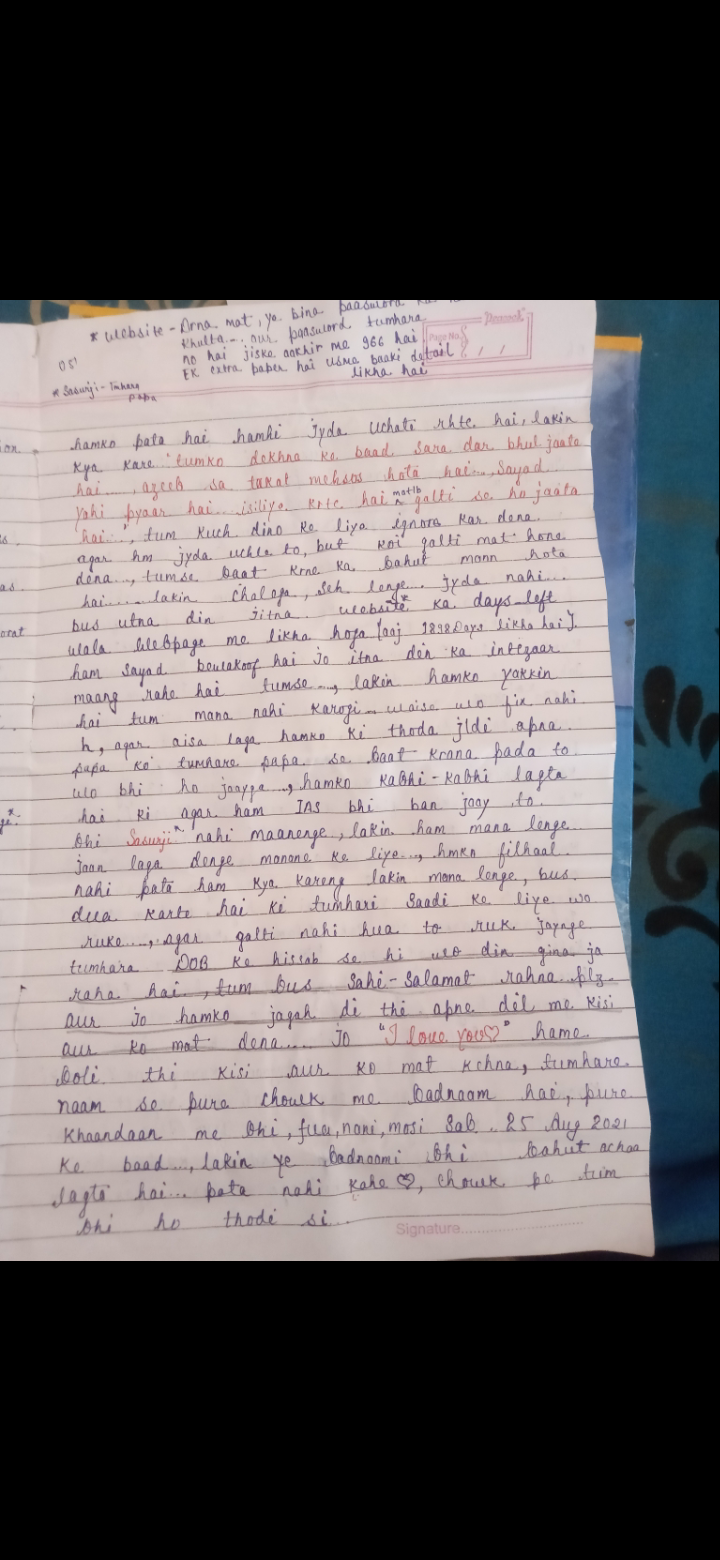 * website - Arna mat, ye bina paasword
khulta... aur paasword tumhara
no hai jiske aakhir me 966 hai
EK extra paper hai usme baaki detail
likha hai
Peacock
Page No.
05'
* Sasurji - Tmhare
papa
ion
hamko pata hai hamhi jyda uchalte rhte hai, lakin
kya kare 'tumko dekhne ke baad sara dar bhul jaata
hai..., azeeb sa takat mehsos hota hai... Sayad
yahi pyaar hai... isiliye krte hai matlb galti se ho jaata
hai..!', tum kuch dino ke liye ignore kar dena
agar hm jyda uchle to, but koi galti mat hone
dena..., tumse baat krne ka bahut mann hota
as
hai..... lakin chalega, seh lenge... jyda nahi...
bus utna din jitna website* ka days left
orat
wala Webpage me likha hoga [aaj 1898 Days likha hai].
ham Sayad bewakoof hai jo itna din ka intezaar
maang rahe hai tumse..., lakin hamko yakkin
hai tum mana nahi karogi... waise wo fix nahi
h, agar aisa laga hamko ki thoda jldi apne
papa ko tumhare papa se baat krana pada to
wo bhi ho jaayga..., hamko Kabhi-Kabhi lagta
hai ki agar ham IAS bhi ban jaay to
bhi Sasurji* nahi maanenge, lakin ham mana lenge
jaan laga denge manane ke liye..., hmko filhaal
nahi pata ham kya kareng lakin mana lenge, bus
dua karte hai ki tumhari Saadi ke liye wo
ruke..., agar galti nahi hua to ruk jaynge
tumhara DOB ke hissab se hi wo din gina ja
raha hai.., tum bus Sahi-Salamat rahna plz
aur jo hamko jagah di thi apne dil me kisi
aur ko mat dena.... Jo "I love you♡" hame
boli thi kisi aur ko mat kehna, tumhare
naam se pure chowk me badnaam hai, pure
khaandaan me bhi, fua, nani, mosi Sab.. 25 Aug 2021
Ke baad..., lakin ye badnaami bhi bahut achaa
lagti hai... pata nahi kahe ♡, chowk pe tum
bhi ho thodi si...
Signature